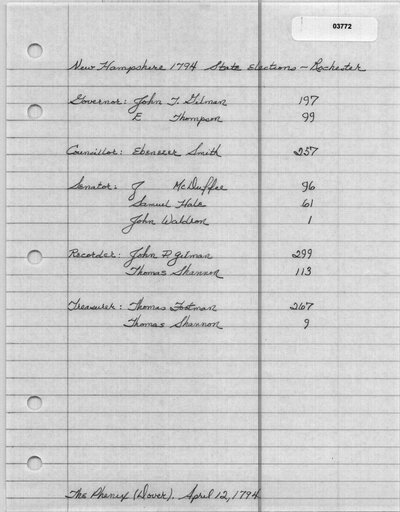 03772
New Hampshire 1794 State Elections - Rochester
Governor: John T. Gilman 197
E Thompson 99
Councillor: Ebenezer Smith 257
Senator: J McDuffee 96
Samuel Hale 61
John Waldron 1
Recorder: John P. Gilman 299
Thomas Shannon 113
Treasurer: Thomas Footman 267
Thomas Shannon 9
The Phenix (Dover), April 12, 1794